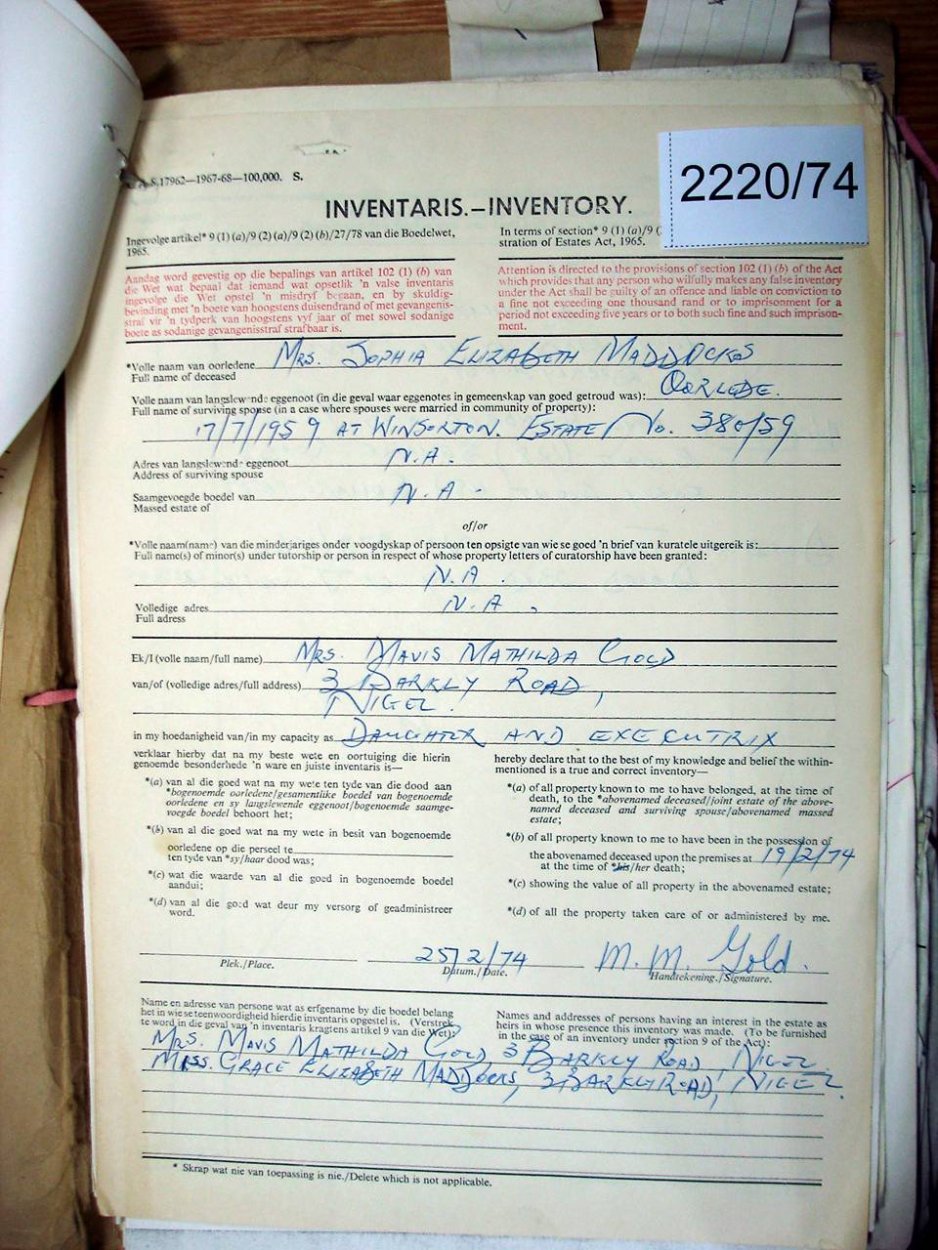 A.S.17962—1967-68—100,000. S.
2220/74
INVENTARIS.—INVENTORY.
Ingevolge artikel* 9 (1) (a)/9 (2) (a)/9 (2) (b)/27/78 van die Boedelwet,
1965.
In terms of section* 9 (1) (a)/9 (
stration of Estates Act, 1965.
Aandag word gevestig op die bepalings van artikel 102 (1) (b) van
die Wet wat bepaal dat iemand wat opsetlik 'n valse inventaris
ingevolge die Wet opstel 'n misdryf begaan, en by skuldig-
bevinding met 'n boete van hoogstens duisendrand of met gevangenis-
straf vir 'n tydperk van hoogstens vyf jaar of met sowel sodanige
boete as sodanige gevangenisstraf strafbaar is.
Attention is directed to the provisions of section 102 (1) (b) of the Act
which provides that any person who wilfully makes any false inventory
under the Act shall be guilty of an offence and liable on conviction to
a fine not exceeding one thousand rand or to imprisonment for a
period not exceeding five years or to both such fine and such imprison-
ment.
*Volle naam van oorledene MRS. SOPHIA ELIZABETH MADDOCKS
Full name of deceased
Volle naam van langslewende eggenoot (in die geval waar eggenotes in gemeenskap van goed getroud was): OORLEDE.
Full name of surviving spouse (in a case where spouses were married in community of property):
17/7/1959 AT WINSORTON. ESTATE No. 380/59
Adres van langslewende eggenoot N.A.
Address of surviving spouse
Saamgevoegde boedel van N.A.
Massed estate of
of/or
*Volle naam(name) van die minderjariges onder voogdyskap of persoon ten opsigte van wie se goed 'n brief van kuratele uitgereik is:
Full name(s) of minor(s) under tutorship or person in respect of whose property letters of curatorship have been granted:
N.A.
Volledige adres N.A.
Full adress
Ek/I (volle naam/full name) MRS. MAVIS MATHILDA GOLD
van/of (volledige adres/full address) 3 BARKLY ROAD,
NIGEL.
in my hoedanigheid van/in my capacity as DAUGHTER AND EXECUTRIX
verklaar hierby dat na my beste wete en oortuiging die hierin
genoemde besonderhede 'n ware en juiste inventaris is—
*(a) van al die goed wat na my wete ten tyde van die dood aan
*bogenoemde oorledene/gesamentlike boedel van bogenoemde
oorledene en sy langslewende eggenoot/bogenoemde saamge-
voegde boedel behoort het;
*(b) van al die goed wat na my wete in besit van bogenoemde
oorledene op die perseel te
ten tyde van *sy/haar dood was;
*(c) wat die waarde van al die goed in bogenoemde boedel
aandui;
*(d) van al die goed wat deur my versorg of geadministreer
word.
hereby declare that to the best of my knowledge and belief the within-
mentioned is a true and correct inventory—
*(a) of all property known to me to have belonged, at the time of
death, to the *abovenamed deceased/joint estate of the above-
named deceased and surviving spouse/abovenamed massed
estate;
*(b) of all property known to me to have been in the possession of
the abovenamed deceased upon the premises at 19/2/74
at the time of *his/her death;
*(c) showing the value of all property in the abovenamed estate;
*(d) of all the property taken care of or administered by me.
25/2/74 M. M. Gold.
Plek./Place. Datum./Date. Handtekening./Signature.
Name en adresse van persone wat as erfgename by die boedel belang
het in wie se teenwoordigheid hierdie inventaris opgestel is. (Verstrek
te word in die geval van 'n inventaris kragtens artikel 9 van die Wet):
Names and addresses of persons having an interest in the estate as
heirs in whose presence this inventory was made. (To be furnished
in the case of an inventory under section 9 of the Act):
MRS. MAVIS MATHILDA GOLD, 3 BARKLY ROAD, NIGEL.
MISS. GRACE ELIZABETH MADDOCKS, 3 BARKLY ROAD, NIGEL.
* Skrap wat nie van toepassing is nie./Delete which is not applicable.